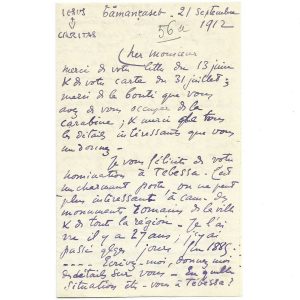 IESUS
CARITAS
Tamanrasset - 21 septembre
1912
56
Cher Monsieur
merci de votre lettre du 13 juin
& de votre carte du 31 juillet ;
merci de la bonté que vous
avez de vous occuper de la
carabine ; & merci de tous
les détails intéressants que vous
me donnez -
Je vous félicite de votre
nomination à Tebessa. C'est
un charmant poste on ne peut
plus intéressant à cause des
monuments romains de la ville
& de toute la région - Je l'ai
vu il y a 27 ans ; j'y ai
passé qlques jours fin 1885
Ecrivez-moi, donnez moi
des détails sur vous - En quelle
situation êtes-vous à Tebessa ?